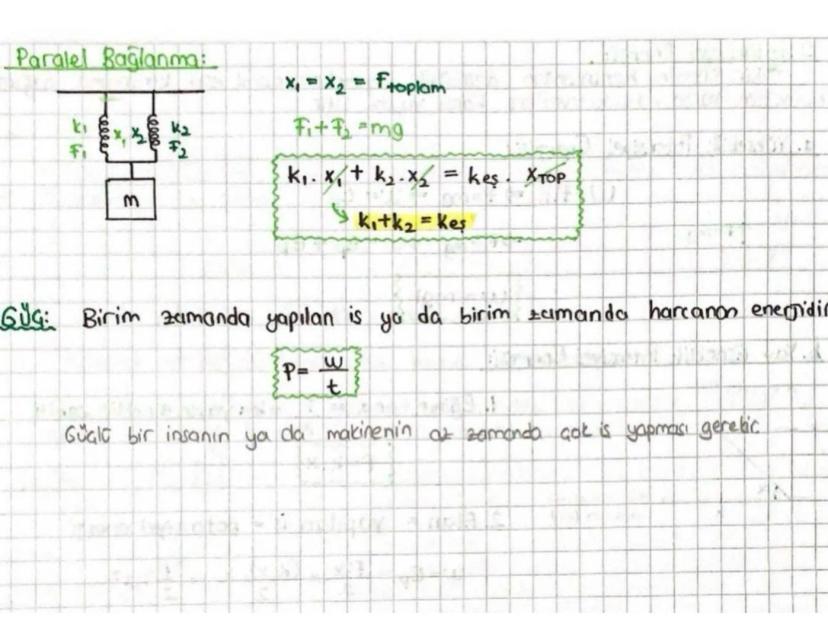 Paralel Bağlanma:
k₁ x₁ x₂ k₂
F₁ F₂
m
x₁ = x₂ = Ftoplam
F₁ + F₂ = mg
k₁. x₁ + k₂.x₂ = keş. XTOP
k₁+k₂ = keş
GÜÇ: Birim zamanda yapılan is ya da birim zamanda harcanan enerjidir
P= W/t
Güçlü bir insanın ya da makinenin az zamanda çok is yapması gerekir.